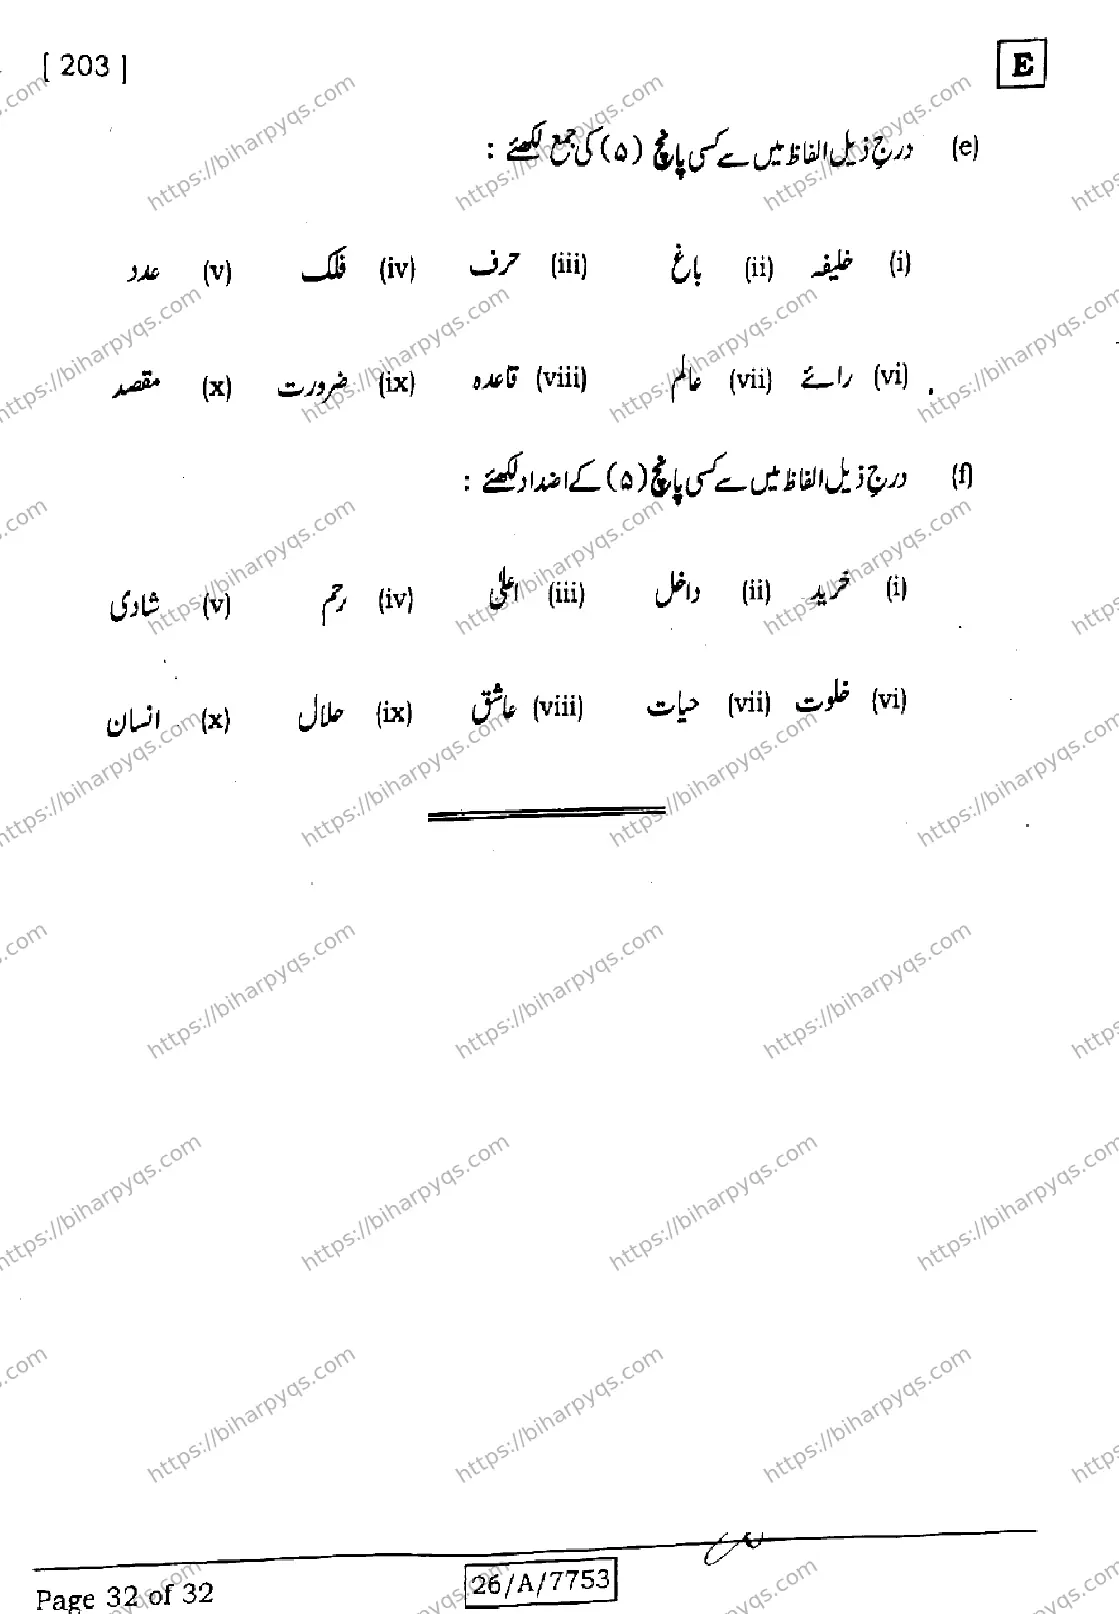 [ 203 ]
E
(e) درج ذیل الفاظ میں سے کسی پانچ (۵) کی جمع لکھئے :
(i) خلیفہ (ii) باغ (iii) حرف (iv) فلک (v) عدد
(vi) رائے (vii) عالم (viii) قاعدہ (ix) ضرورت (x) مقصد
(f) درج ذیل الفاظ میں سے کسی پانچ (۵) کے اضداد لکھئے :
(i) خرید (ii) داخل (iii) اعلیٰ (iv) رحم (v) شادی
(vi) خلوت (vii) حیات (viii) عاشق (ix) حلال (x) انسان
Page 32 of 32
26/A/7753
https://biharpyqs.com